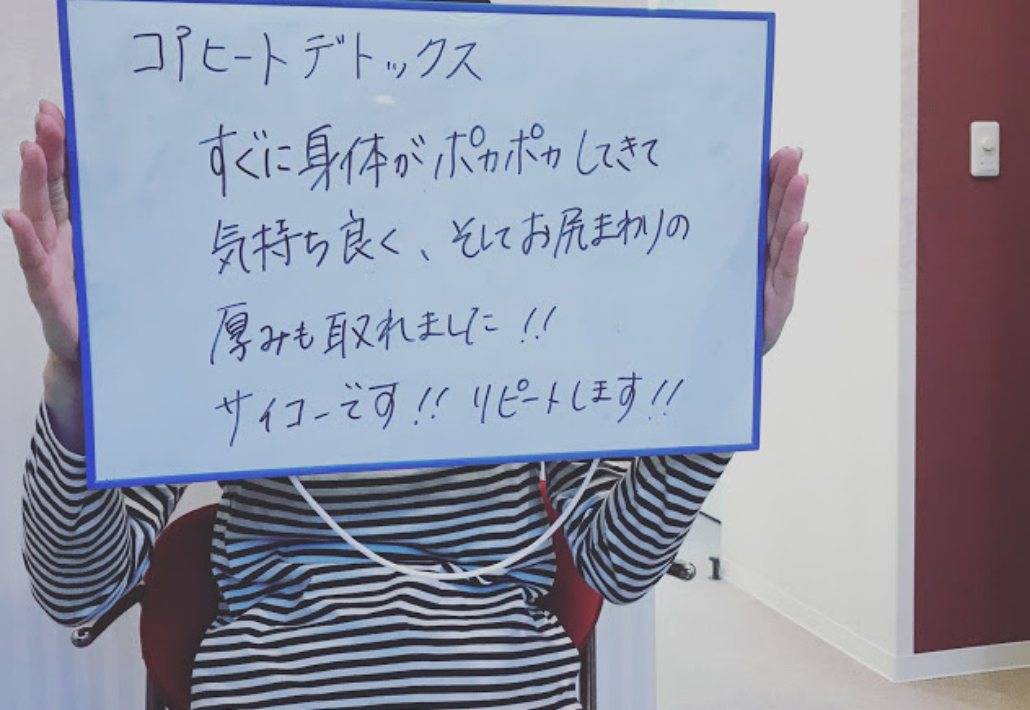 コアヒートデトックス
すぐに身体がポカポカしてきて
気持ち良く、そしてお尻まわりの
厚みも取れました!!
サイコーです!! リピートします!!